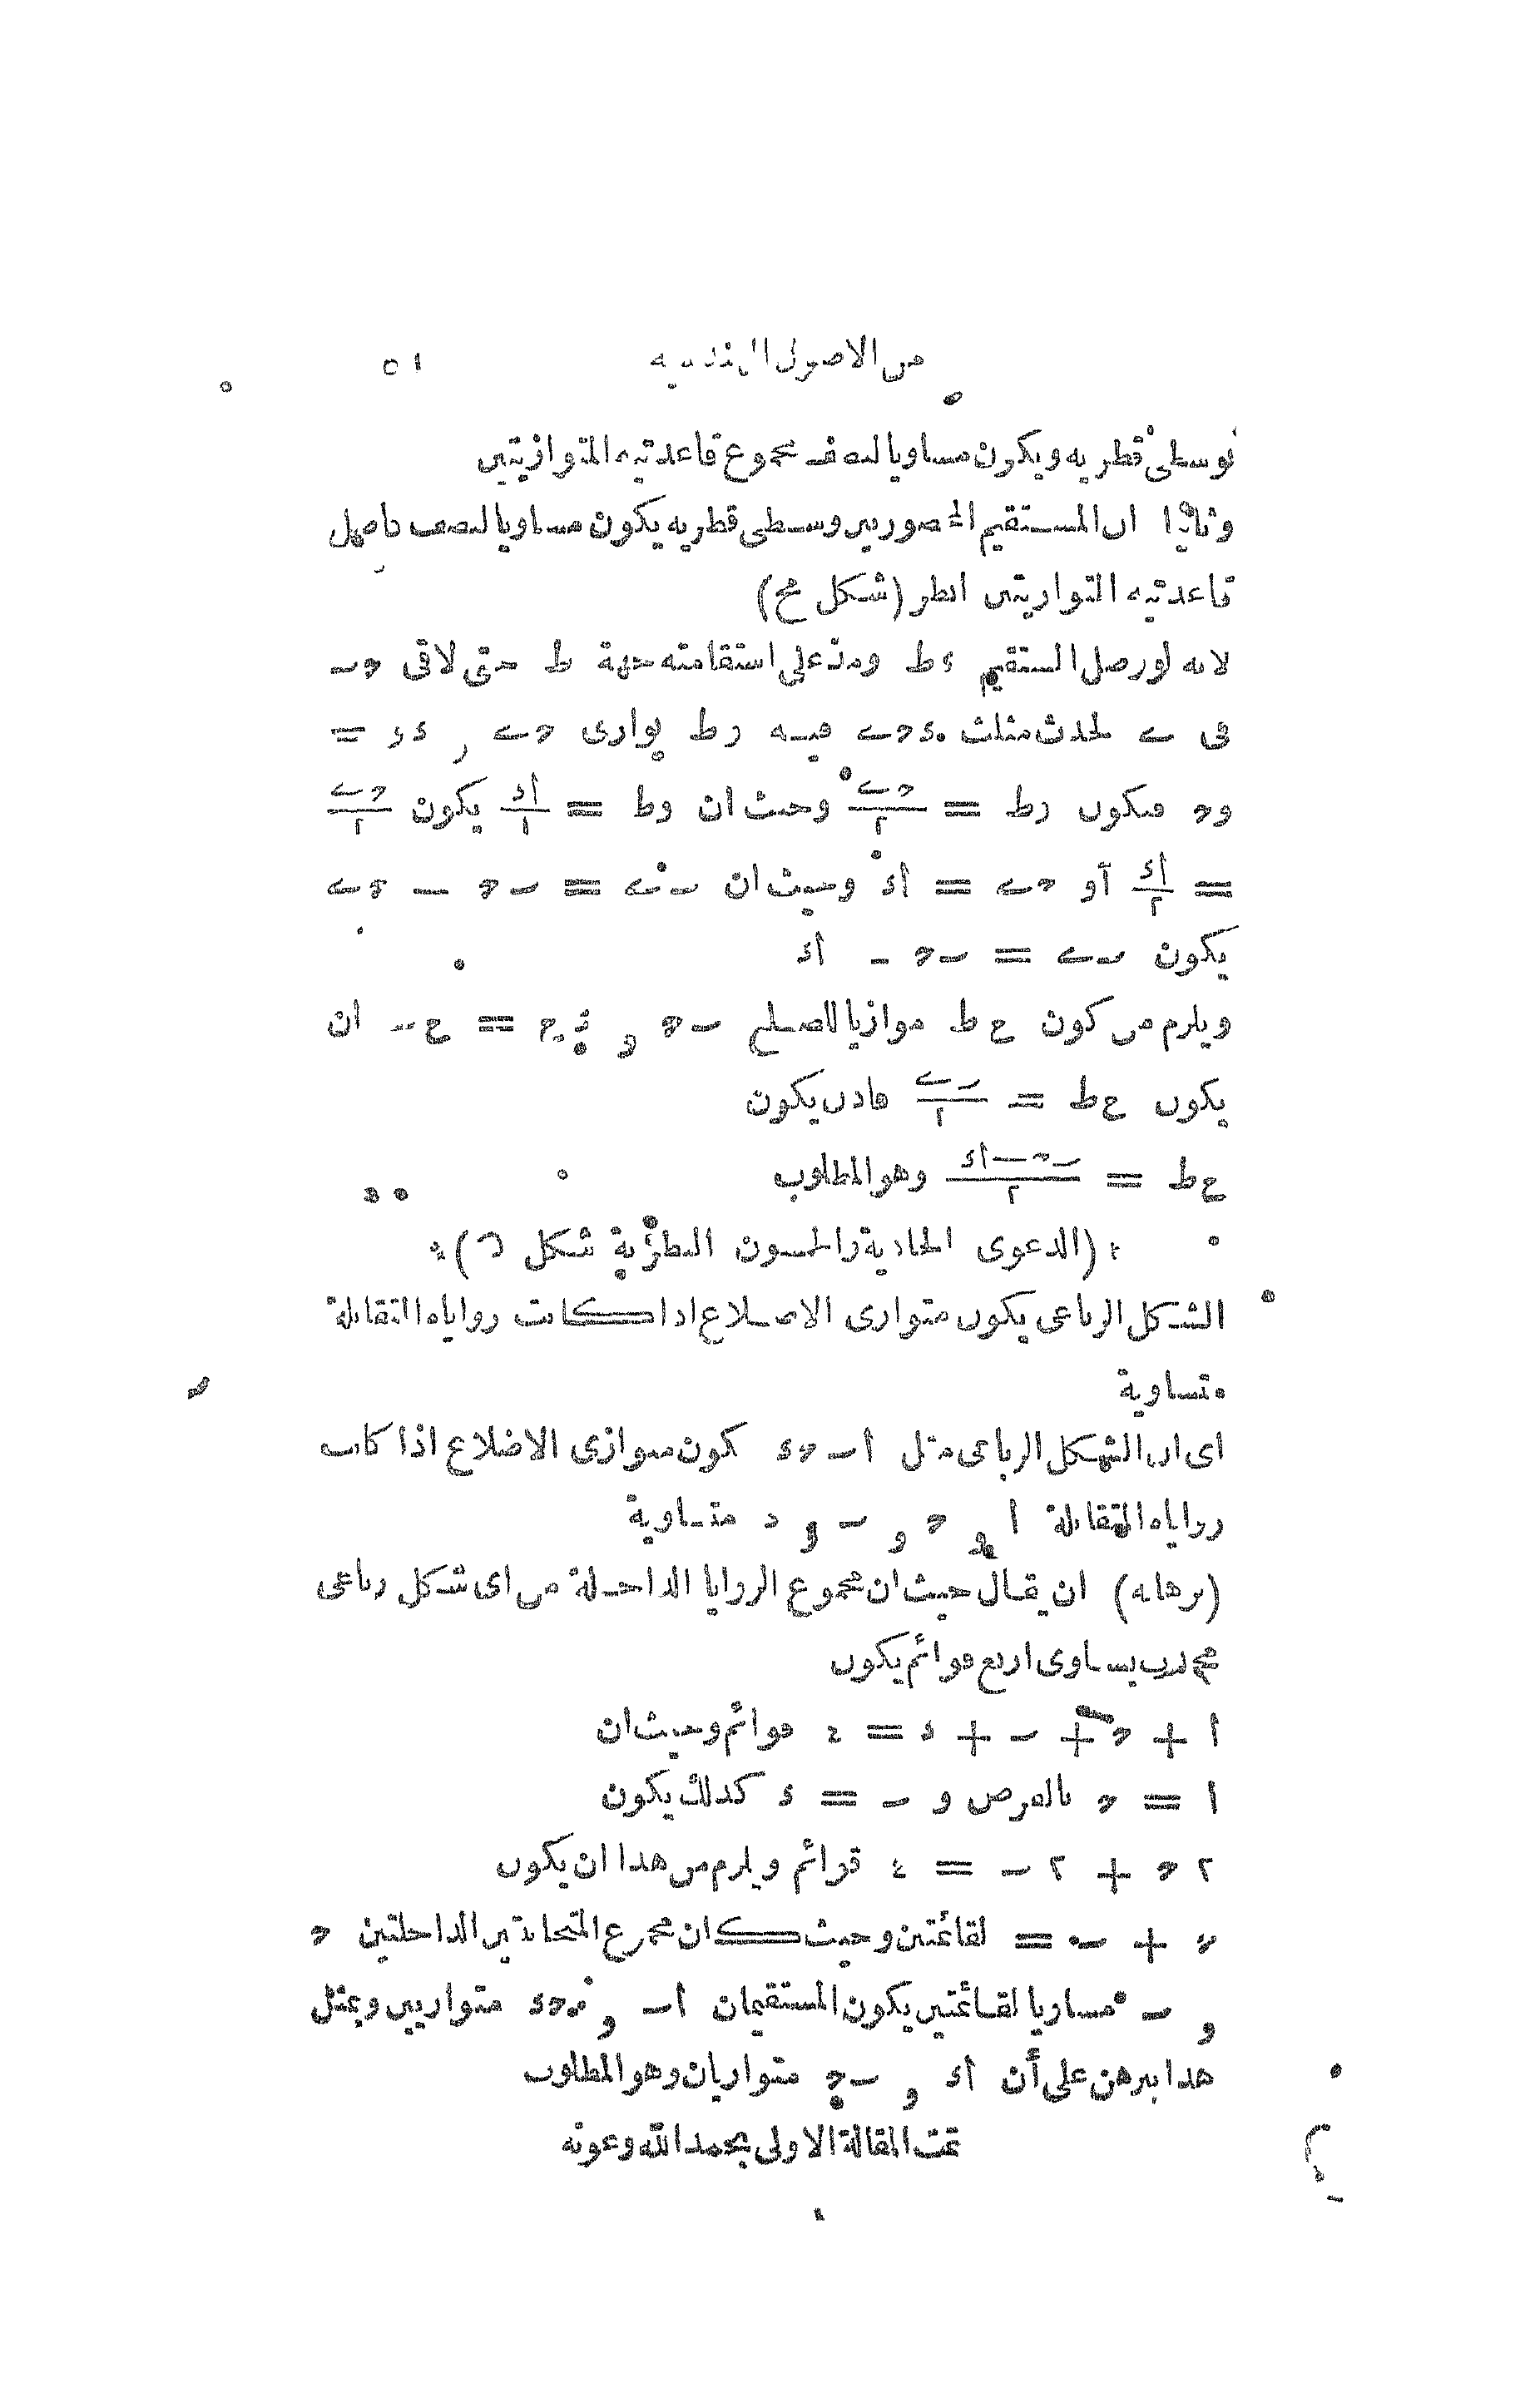 من الاصول الهندسية ٥١
بوسطى قطريه ويكون مساويا لنصف مجموع قاعدتيه المتوازيتين
وثانيا ان المستقيم المحصور بين وسطى قطريه يكون مساويا لنصف تفاضل
قاعدتيه المتوازيتين انظر (شكل مح)
لانه لو وصل المستقيم ء ط ومد على استقامته جهة ط حتى لاقى حـ ٮ
فى ے لحدث مثلث ء حـ ے فيه ر ط يوازى حـ ے و ء و =
و حـ فيكون و ط = حـ ے / ٢ وحيث ان و ط = أ ء / ٢ يكون حـ ے / ٢
= أ ء / ٢ أو حـ ے = أ ء وحيث ان ٮ ے = ٮ حـ ــ حـ ے
يكون ٮ ے = ٮ حـ ــ أ ء
ويلزم من كون ع ط موازيا للضلع ٮ حـ و ع = ع ٮ ان
يكون ع ط = ٮ ے / ٢ فاذن يكون
ع ط = ٮ حـ ــ أ ء / ٢ وهو المطلوب
(الدعوى الحادية والخمسون النظرية شكل )
الشكل الرباعى يكون متوازى الاضلاع اذا كانت زواياه المتقابلة
متساوية
اى ان الشكل الرباعى مثل أ ٮ حـ ء يكون متوازى الاضلاع اذا كانت
زواياه المتقابلة أ و حـ و ٮ و د متساوية
(برهانه) ان يقال حيث ان مجموع الزوايا الداخلة من اى شكل رباعى
محدب يساوى اربع قوائم يكون
أ + حـ + ٮ + ء = ٤ قوائم وحيث ان
أ = حـ بالفرض و ٮ = ء كذلك يكون
٢ حـ + ٢ ٮ = ٤ قوائم ويلزم من هذا ان يكون
حـ + ٮ = لقائمتين وحيث كان مجموع المتحاذتين الداخلتين حـ
و ٮ مساويا لقائمتين يكون المستقيمان أ ٮ و حـ ء متوازيين وبمثل
هذا يبرهن على أن أ ء و ٮ حـ متوازيان وهو المطلوب
تمت المقالة الاولى بحمد الله وعونه